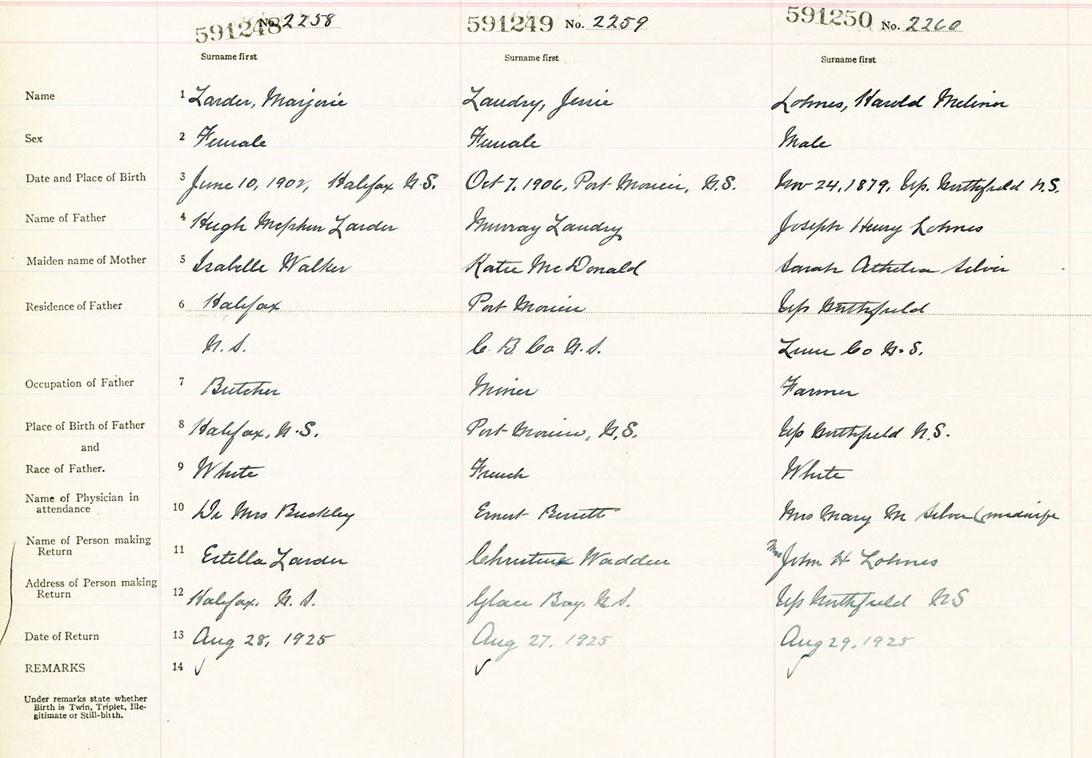 591248 No. 2258 591249 No. 2259 591250 No. 2260
Surname first Surname first Surname first
Name 1 Larder, Marjorie Landry, Jessie Lohnes, Harold
Sex 2 Female Female Male
Date and Place of Birth 3 June 10, 1902, Halifax N.S. Oct 7, 1906, Port Morien, N.S. Nov 24, 1879, Up. Northfield N.S.
Name of Father 4 Hugh Larder Murray Landry Joseph Henry Lohnes
Maiden name of Mother 5 Isabelle Walker Katie McDonald Sarah Silver
Residence of Father 6 Halifax Port Morien Up Northfield
N.S. C. B. Co N.S. Lune Co N.S.
Occupation of Father 7 Butcher Miner Farmer
Place of Birth of Father 8 Halifax, N.S. Port Morien, N.S. Up Northfield N.S.
and
Race of Father. 9 White French White
Name of Physician in
attendance 10 Dr Mrs Buckley Ernest Mrs Mary M Silver (midwife
Name of Person making
Return 11 Estella Larder Wadden Mrs John H Lohnes
Address of Person making
Return 12 Halifax, N.S. Glace Bay, N.S. Up Northfield NS
Date of Return 13 Aug 28, 1925 Aug 27, 1925 Aug 29, 1925
REMARKS 14
Under remarks state whether
Birth is Twin, Triplet, Ille-
gitimate or Still-birth.